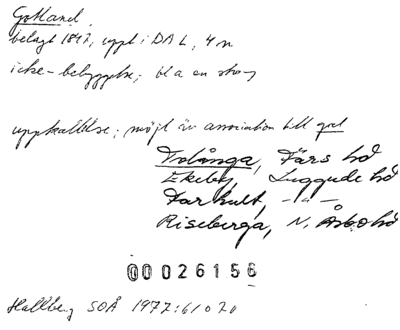 Gotland
belagt 1847, uppt i DAL, 4 n
icke-bebyggelse; bl a en skog
uppkallelse; möjl äv association till god
Tolånga, Färs hd
Ekeby, Luggude hd
Farhult, -"-
Riseberga, N. Åsbo hd
00026156
Hallberg SOÅ 1977:61 o 70